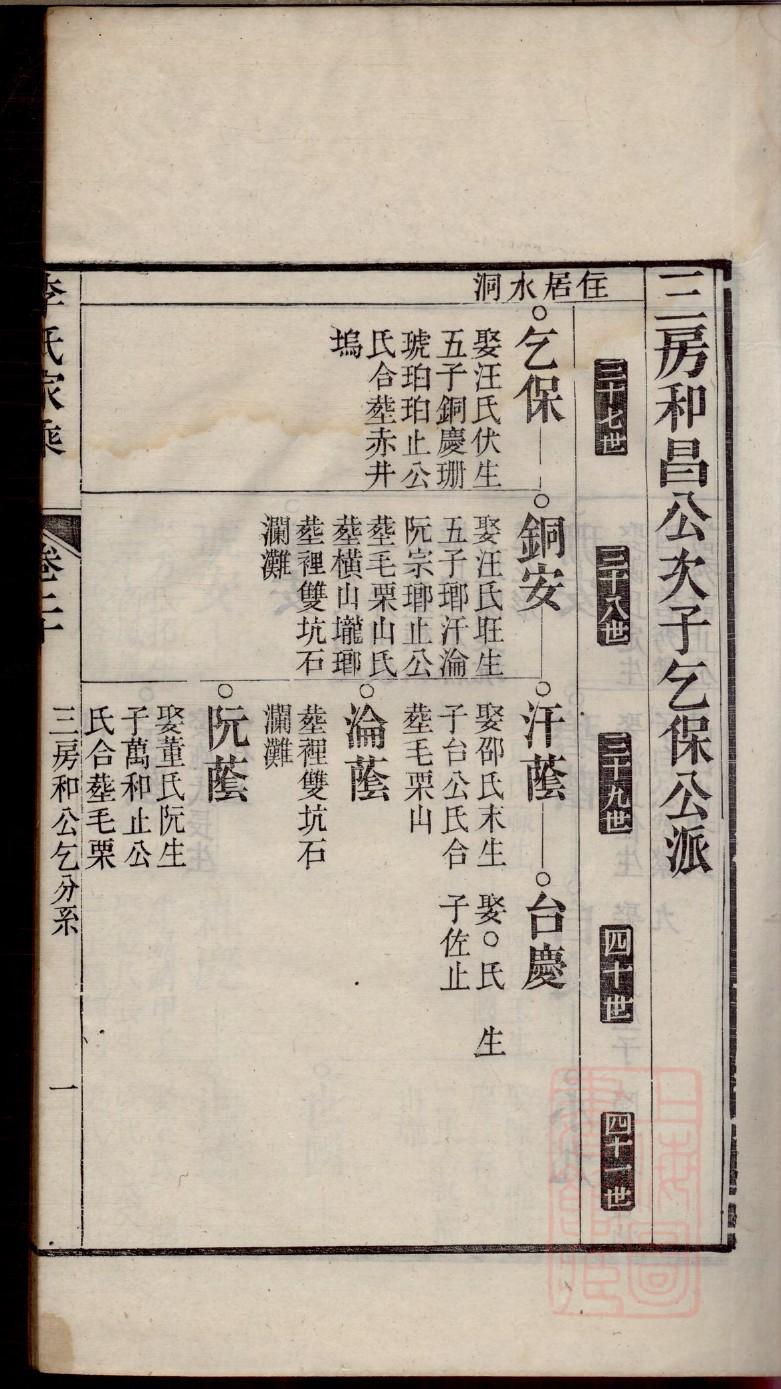 三房和昌公次子乞保公派
三十七世
三十八世
三十九世
四十世
四十一世
住居水洞
乞保
娶汪氏伏生
五子銅慶珊
琥珀珀止公
氏合塟赤井
塢
銅安
娶汪氏旺生
五子瑯汗淪
阮宗瑯止公
塟毛栗山氏
塟橫山壠瑯
塟裡雙坑石
瀾灘
汗蔭
娶邵氏末生
子台公氏合
塟毛栗山
台慶
娶○氏 生
子佐止
淪蔭
塟裡雙坑石
瀾灘
阮蔭
娶董氏阮生
子萬和止公
氏合塟毛栗
李氏家乘
卷二十
三房和公乞分系
一